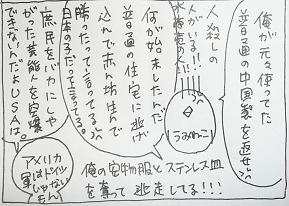 俺が元々使ってた
普通の中国製を返せ
人殺しの
人がいる!!
水橋高人!!!
うみねこ
何が始ましたんだ
普通の住宅に逃げ
込んで赤ん坊住んで
勝ったって言ってる
日本の子だって言ってる
庶民をバカにしや
がった芸能人を
でてないんだよUSAは。
アメリカ
軍は
ドイツ
じゃない
俺の安物服とステンレス皿
を奪って逃走してる!!!